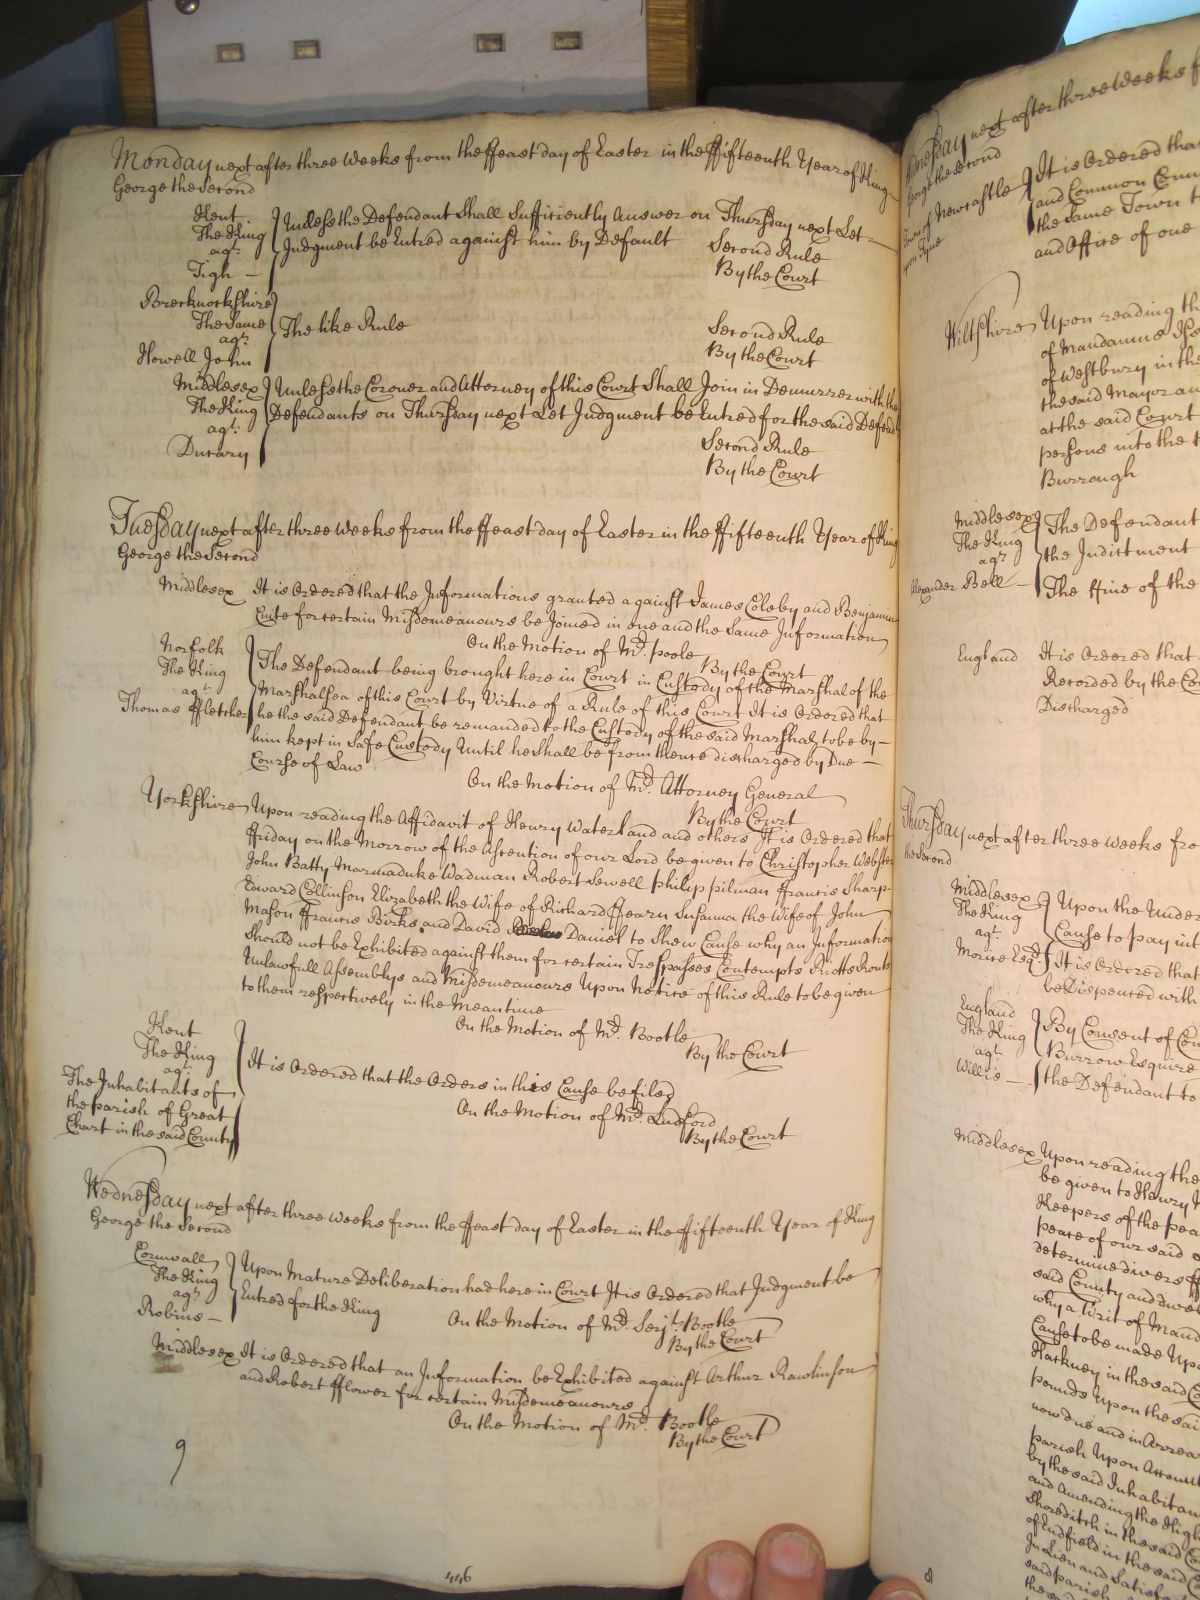 Monday next after three Weeks from the ffeast day of Easter in the ffifteenth Year of King
George the Second
Kent
The King
agt.
Tigh
Unless the Defendant Shall Sufficiently Answer on Thursday next Let
Judgment be Entred against him by Default
Second Rule
By the Court
Brecknockshire
The Same
agt.
Howell John
The like Rule
Second Rule
By the Court
Middlesex
The King
agt.
Unless the Coroner and Attorney of this Court Shall Join in Demurrer with the
Defendants on Thursday next Let Judgment be Entred for the said Defend
Second Rule
By the Court
Tuesday next after three Weeks from the ffeast day of Easter in the ffifteenth Year of King
George the Second
Middlesex
It is Ordered that the Informations granted against James Coleby and Benjamin
for certain Misdemeanours be Joined in one and the Same Information
On the Motion of Mr. Poole
By the Court
Norfolk
The King
agt.
Thomas ffletcher
The Defendant being brought here in Court in Custody of the Marshal of the
Marshalsea of this Court by Virtue of a Rule of this Court It is Ordered that
he the said Defendant be remanded to the Custody of the said Marshal to be by
him kept in Safe Custody Until he shall be from thence discharged by Due
Course of Law
On the Motion of Mr. Attorney General
By the Court
Yorkshire
Upon reading the Affidavit of Henry Waterland and others It is Ordered that
ffriday on the Morrow of the Ascention of our Lord be given to Christopher Webster
John Batty Marmaduke Wadman Robert Sewell Philip Pilman ffrancis Sharp
Edward Collinson Elizabeth the Wife of Richard ffearn Susanna the Wife of John
Mason ffrancis Birks and David Daniel to Shew Cause why an Information
Should not be Exhibited against them for certain Trespasses Contempts Riotts Routs
Unlawfull Assemblys and Misdemeanours Upon Notice of this Rule to be given
to them respectively in the Meantime
On the Motion of Mr. Bootle
By the Court
Kent
The King
agt.
The Inhabitants of
the parish of Great
Chart in the said County
It is Ordered that the Orders in this Cause be filed
On the Motion of Mr. Ludford
By the Court
Wednesday next after three Weeks from the ffeast day of Easter in the ffifteenth Year of King
George the Second
Cornwall
The King
agt.
Robins
Upon Mature Deliberation had here in Court It is Ordered that Judgment be
Entred for the King
On the Motion of Mr. Serjt. Bootle
By the Court
Middlesex
It is Ordered that an Information be Exhibited against Arthur Rawlinson
and Robert fflower for certain Misdemeanours
On the Motion of Mr. Bootle
By the Court
9
446
next after three Weeks f
George the Second
Town of Newcastle
upon Tyne
It is Ordered tha
and Common Coun
the same Town t
and Office of one
Wiltshire
Upon reading th
of Mandamus
of Westbury in the
the said Mayor an
at the said Court
persons into the
Burrough
Middlesex
The King
agt.
Alexander Bell
The Defendant
the Indictment
The ffine of the
England
It is Ordered that
Recorded by the Co
Discharged
Thursday next after three Weeks fro
the Second
Middlesex
The King
agt.
Morice Esqr.
Upon the Under
Cause to pay int
It is Ordered that
be Dispenced with
England
The King
agt.
Willis
By Consent of Cou
Burrow Esquire
the Defendant to
Middlesex
Upon reading the
be given to Henry
Keepers of the pea
peace of our said
determine divers ff
said County and
why a Writ of Mand
Cause to be made Upo
Hackney in the said Co
pounds Upon the sai
now due and in Arrear
parish Upon
by the said Inhabitan
and Amending the High
Shoreditch in the said Co
of Endfield in the said Co
In Lieu and Satisf
said parish